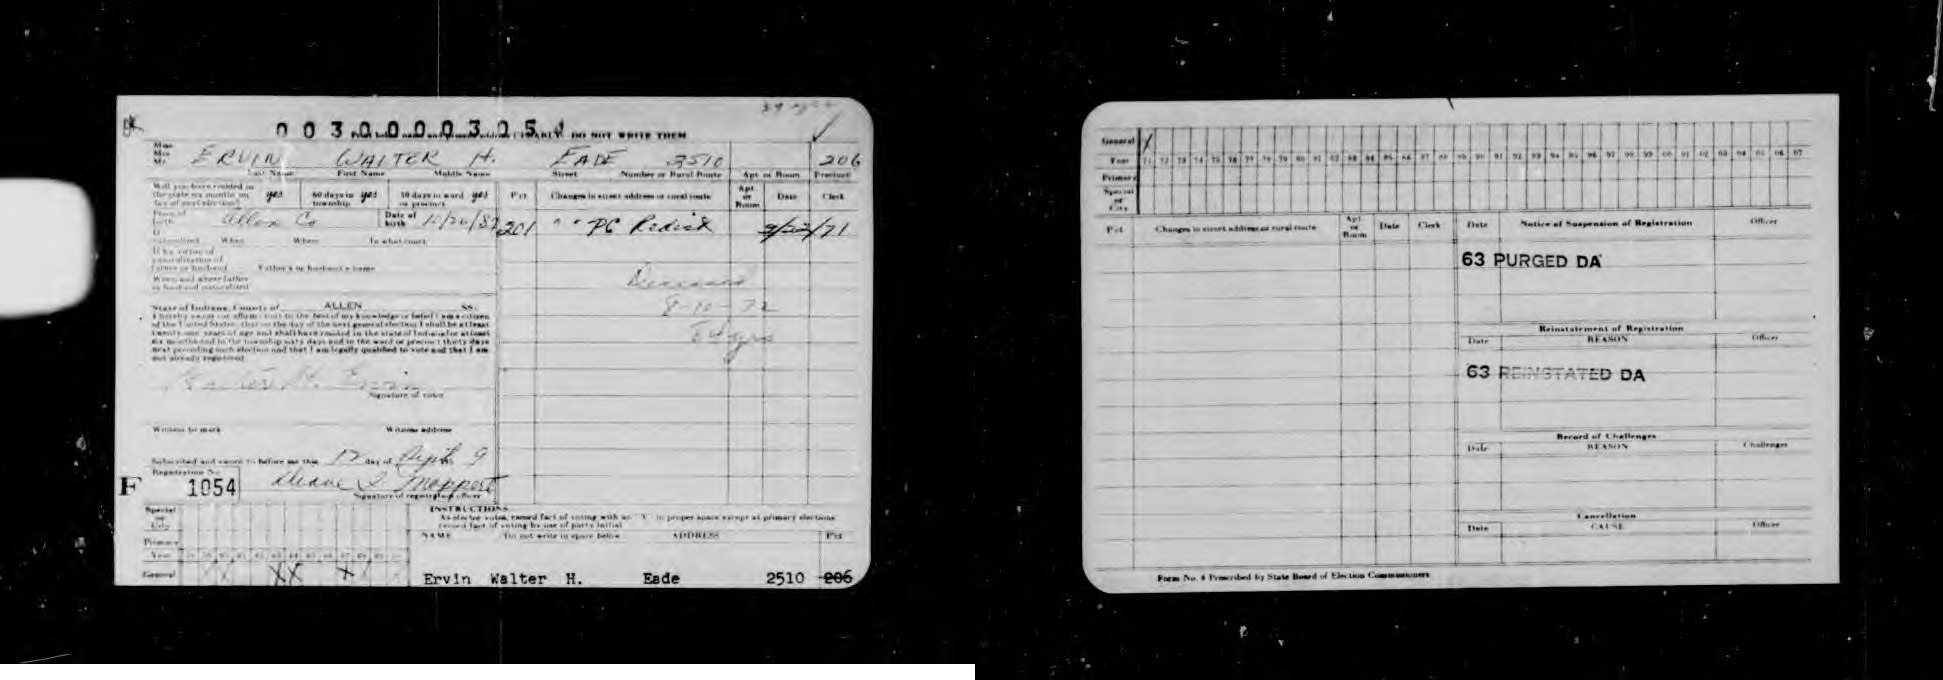 OK
0030000305
DO NOT WRITE THEM
Miss
Mrs
Mr. ERVIN WALTER H. EADE 2510 206
Last Name First Name Middle Name Street Number or Rural Route Apt or Room Precinct
Will you have resided in the state six months on day of next election? yes 60 days in township yes 30 days in ward or precinct yes
Pct Changes in street address or rural route Apt or Room Date Clerk
Place of birth Allen Co Date of birth
201 " " PC Redist /71
When Where In what court
If by virtue of naturalization of father or husband Father's or husband's name
When and where father or husband naturalized
Deceased
8-10-72
State of Indiana, County of ALLEN SS:
I hereby swear (or affirm) that to the best of my knowledge or belief I am a citizen
of the United States, that on the day of the next general election I shall be at least
twenty-one years of age and shall have resided in the state of Indiana for at least
six months and in the township sixty days and in the ward or precinct thirty days
next preceding such election and that I am legally qualified to vote and that I am
not already registered.
Walter H. Ervin
Signature of voter
Witness to mark Witness address
Subscribed and sworn to before me this 12 day of Sept.
Registration No
F 1054
Signature of registration officer
Special or City
Primary
Year
General
INSTRUCTIONS
As elector votes, record fact of voting with an "X" in proper space except at primary elections
record fact of voting by use of party initial
NAME Do not write in space below ADDRESS Pct
Ervin Walter H. Eade 2510 206
General X
Year 71 72 73 74 75 76 77 78 79 80 81 82 83 84 85 86 87 88 89 90 91 92 93 94 95 96 97 98 99 00 01 02 03 04 05 06 07
Primary
Special or City
Pct Changes in street address or rural route Apt or Room Date Clerk
Date Notice of Suspension of Registration Officer
63 PURGED DA
Reinstatement of Registration
Date REASON Officer
63 REINSTATED DA
Record of Challenges
Date REASON Challenger
Cancellation
Date CAUSE Officer
Form No. 4 Prescribed by State Board of Election Commissioners